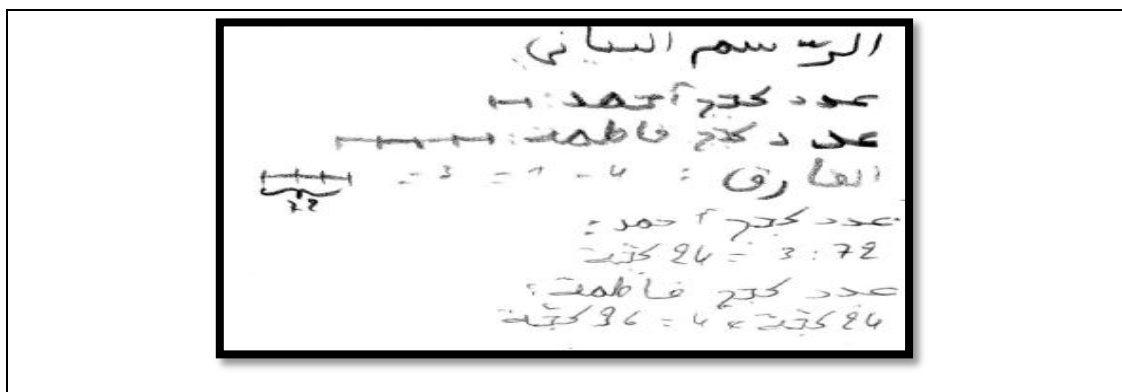 الرّسم البياني
عدد كجج أحمد :
عدد كجج فاطمة :
الفارق : 4 - 1 = 3 =
72
عدد كجج أحمد :
72 : 3 = 24 كجّة
عدد كجج فاطمة :
24 كجّة × 4 = 96 كجّة